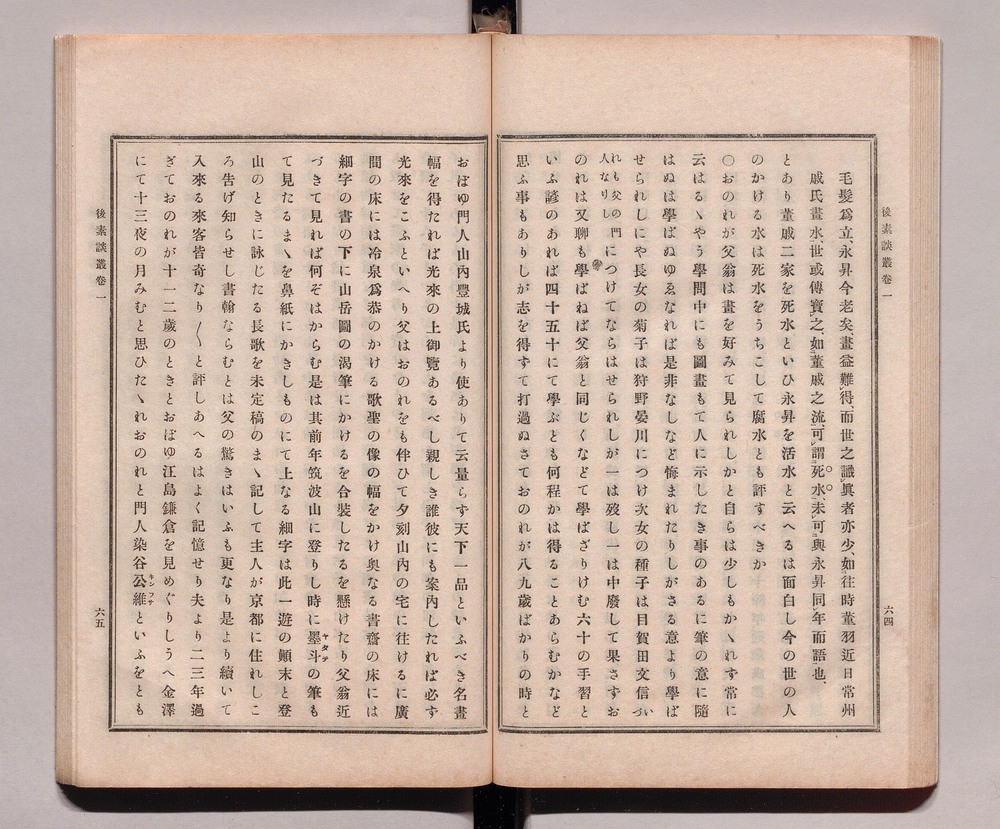 後素談叢卷一
六四
毛髮爲立、永昇今老矣、畫益難得、而世之識眞者亦少、如往時董羽近日常州
戚氏畫水、世或傳寶之、如董戚之流、可謂死水、未可與永昇同年而語也、
とあり董戚二家を死水といひ永昇を活水と云へるは面白し今の世の人
のかける水は死水をうちこして腐水とも評すべきか
〇おのれが父翁は畫を好みて見られしかと自らは少しもかゝれず常に
云はるゝやう學問中にも圖畫もて人に示したき事のあるに筆の意に隨
はぬは學ばぬゆゑなれば是非なしなど悔まれたりしがさる意より學ば
せられしにや長女の菊子は狩野晏川につけ次女の種子は目賀田文信
れも父の門
人なりし につけてならはせられしが一は歿し一は中廢して果さずお
のれは又聊も學ばねば父翁と同じくなどて學ばざりけむ六十の手習と
いふ諺のあれば四十五十にて學ぶとも何程かは得ることあらむかなど
思ふ事もありしが志を得ずて打過ぬさておのれが八九歳ばかりの時と
おぼゆ門人山內豐城氏より使ありて云量らず天下一品といふべき名畫
幅を得たれば光來の上御覽あるべし親しき誰彼にも案內したれば必ず
光來をこふといへり父はおのれをも伴ひて夕刻山內の宅に往けるに廣
間の床には冷泉爲恭のかける歌聖の像の幅をかけ奧なる書齋の床には
細字の書の下に山岳圖の渴筆にかけるを合裝したるを懸けたり父翁近
づきて見れば何ぞはからむ是は其前年筑波山に登りし時に墨斗の筆も
ヤタテ
て見たるまゝを鼻紙にかきしものにて上なる細字は此一遊の顚末と登
山のときに詠じたる長歌を未定稿のまゝ記して主人が京都に住れしこ
ろ吿げ知らせし書翰ならむとは父の驚きはいふも更なり是より續いて
入來る來客皆奇なり〱と評しあへるはよく記憶せり夫より二三年過
ぎておのれが十一二歲のときとおぼゆ江島鎌倉を見めぐりしうへ金澤
にて十三夜の月みむと思ひたゝれおのれと門人染谷公維といふをとも
キンフサ
後素談叢卷一
六五